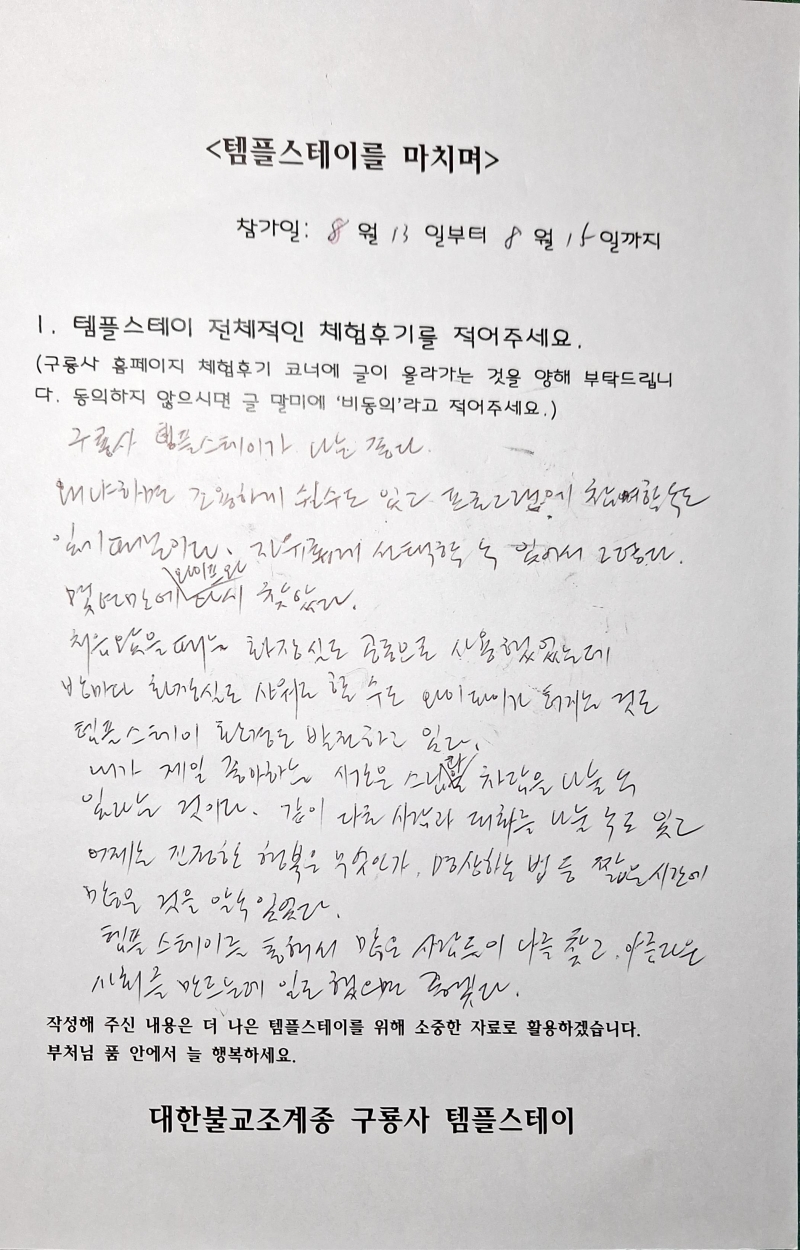 <템플스테이를 마치며>
참가일: 8 월 13 일부터 8 월 15일까지
1. 템플스테이 전체적인 체험후기를 적어주세요.
(구룡사 홈페이지 체험후기 코너에 글이 올라가는 것을 양해 부탁드립니
다. 동의하지 않으시면 글 말미에 '비동의'라고 적어주세요.)
구룡사 템플스테이가 나는 좋다.
왜냐하면 조용하게 쉴수도 있고 프로그램에 참여할수도
있기 때문이다. 자유롭게 선택할 수 있어서 그렇다.
몇년만에 와이프와 다시 찾았다.
처음 왔을때는 화장실도 공용으로 사용했었는데
방마다 화장실도 샤워도 할 수도 와이파이가 터지는 것도
템플스테이 환경도 발전하고 있다.
내가 제일 좋아하는 새로운 스님과 차담을 나눌 수
있다는 것이다. 같이 다른 시각과 대화를 나눌 수도 있고
어제는 진정한 행복은 무엇인가, 명상하는 법 등 짧은 시간에
많은 것을 알수 있었다.
템플 스테이를 통해서 많은 사람들이 나를 찾고, 아름다운
사회를 만드는데 일조 했으면 좋겠다.
작성해 주신 내용은 더 나은 템플스테이를 위해 소중한 자료로 활용하겠습니다.
부처님 품 안에서 늘 행복하세요.
대한불교조계종 구룡사 템플스테이